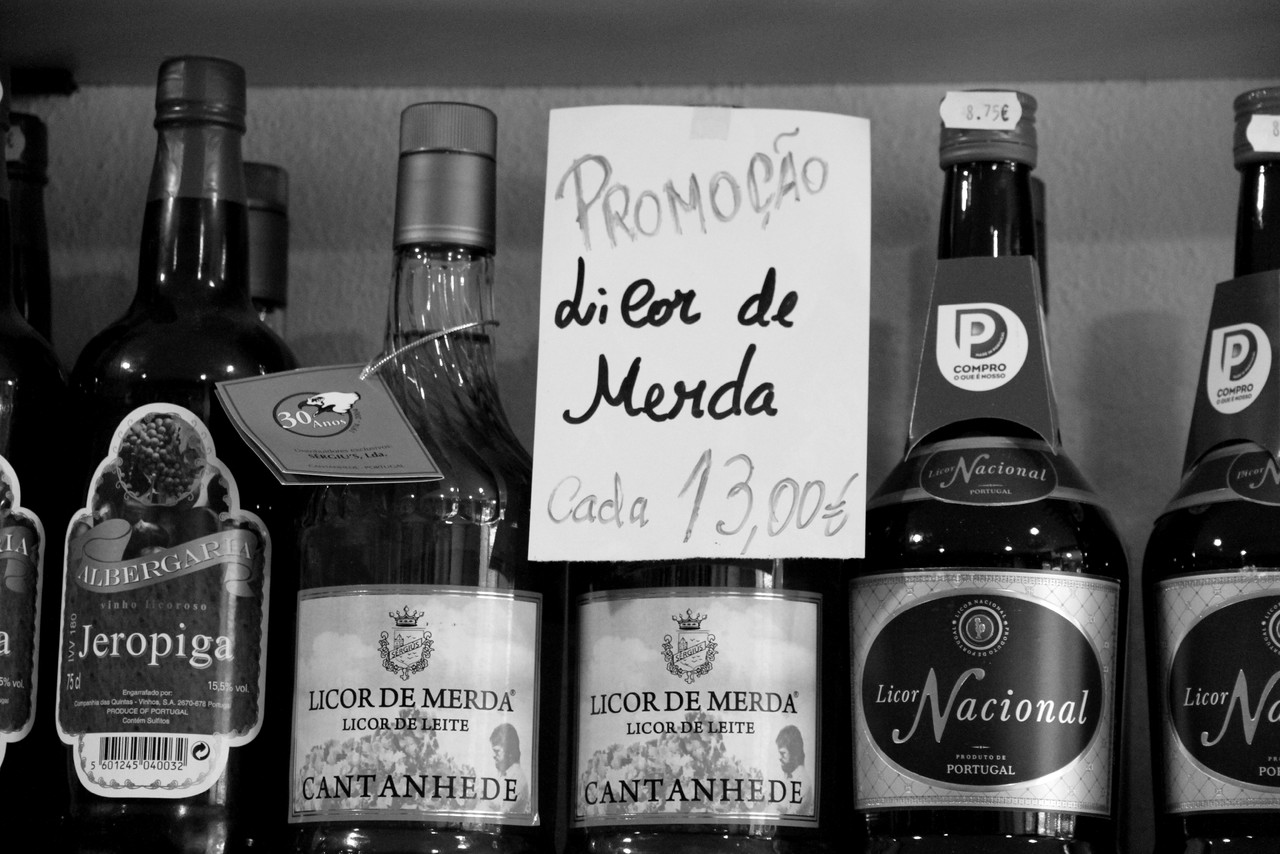 PROMOÇÃO
Licor de
Merda
Cada 13,00€
8.75€
8
COMPRO
O QUE É NOSSO
COMPRO
O QUE É NOSSO
30 Anos
SERGIUS, Lda.
CANTANHEDE - PORTUGAL
ALBERGARIA
vinho licoroso
Jeropiga
IVV 180
75 cl
15,5% vol.
Engarrafado por:
Companhia das Quintas - Vinhos, S.A. 2670-678
PRODUCE OF PORTUGAL
Contém Sulfitos
5 601245 040032
RIA
a
5% vol.
SERGIUS
LICOR DE MERDA®
LICOR DE LEITE
CANTANHEDE
SERGIUS
LICOR DE MERDA®
LICOR DE LEITE
CANTANHEDE
Licor Nacional
PORTUGAL
LICOR NACIONAL
PRODUTO DE PORTUGAL
Licor Nacional
PRODUTO DE
PORTUGAL
Licor N
Licor Na
PO